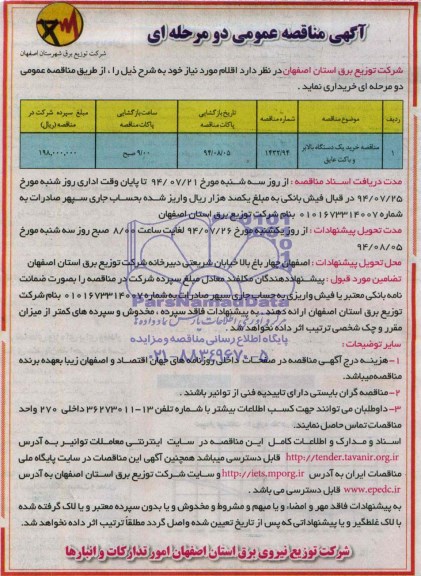 آگهی مناقصه عمومی دو مرحله ای
شرکت توزیع برق شهرستان اصفهان
شرکت توزیع برق استان اصفهان در نظر دارد اقلام مورد نیاز خود به شرح ذیل را ، از طریق مناقصه عمومی
دو مرحله ای خریداری نماید .
ردیف موضوع مناقصه شماره مناقصه تاریخ بازگشایی پاکات مناقصه ساعت بازگشایی پاکات مناقصه مبلغ سپرده شرکت در مناقصه (ریال)
۱ مناقصه خرید یک دستگاه بالابر و باکت عایق ۱۴۳۳/۹۴ ۹۴/۰۸/۰۵ ۹/۰۰ صبح ۱۹۸,۰۰۰,۰۰۰
مدت دریافت اسناد مناقصه : از روز سه شنبه مورخ ۹۴/۰۷/۲۱ تا پایان وقت اداری روز شنبه مورخ
۹۴/۰۷/۲۵ در قبال فیش بانکی به مبلغ یکصد هزار ریال واریز شده بحساب جاری سپهر صادرات به
شماره ۰۱۰۱۶۷۳۳۱۴۰۰۷ بنام شرکت توزیع برق استان اصفهان
مدت تحویل پیشنهادات : از روز یکشنبه مورخ ۹۴/۰۷/۲۶ لغایت ساعت ۸/۰۰ صبح روز سه شنبه مورخ
۹۴/۰۸/۰۵
محل تحویل پیشنهادات : اصفهان چهار باغ بالا خیابان شریعتی دبیرخانه شرکت توزیع برق استان اصفهان
تضامین مورد قبول : پیشنهاددهندگان مکلفند معادل مبلغ سپرده شرکت در مناقصه را بصورت ضمانت
نامه بانکی معتبر یا فیش واریزی به حساب جاری سپهر صادرات به شماره ۰۱۰۱۶۷۳۳۱۴۰۰۷ بنام شرکت
توزیع برق استان اصفهان ارائه دهند . به پیشنهادات فاقد سپرده ، مخدوش و سپرده های کمتر از میزان
مقرر و چک شخصی ترتیب اثر داده نخواهد شد .
سایر توضیحات :
۱- هزینه درج آگهی مناقصه در صفحات داخلی روزنامه های جهان اقتصاد و اصفهان زیبا بعهده برنده
مناقصه میباشد.
۲- مناقصه گران بایستی دارای تاییدیه فنی از توانیر باشند .
۳- داوطلبان می توانند جهت کسب اطلاعات بیشتر با شماره تلفن ۱۳-۳۶۲۷۳۰۱۱ داخلی ۲۷۰ واحد
مناقصات تماس حاصل نمایند.
اسناد و مدارک و اطلاعات کامل این مناقصه در سایت اینترنتی معاملات توانیر به آدرس
http://tender.tavanir.org.ir قابل دسترسی میباشد همچنین آگهی این مناقصات در سایت پایگاه ملی
مناقصات ایران به آدرس http://iets.mporg.ir و سایت شرکت توزیع برق استان اصفهان به آدرس
www.epedc.ir قابل دسترسی می باشد .
به پیشنهادات فاقد مهر و امضاء ، و یا مبهم و مشروط و مخدوش و یا بدون سپرده معتبر و یا لاک گرفته شده
با لاک غلطگیر و یا پیشنهاداتی که پس از تاریخ تعیین شده واصل گردد مطلقاً ترتیب اثر داده نخواهد شد.
شرکت توزیع نیروی برق استان اصفهان امور تدارکات و انبارها
ParsNamadData
پایگاه اطلاع رسانی مناقصه و مزایده
۰۲۱-۸۸۳۴۹۶۷۰-۵